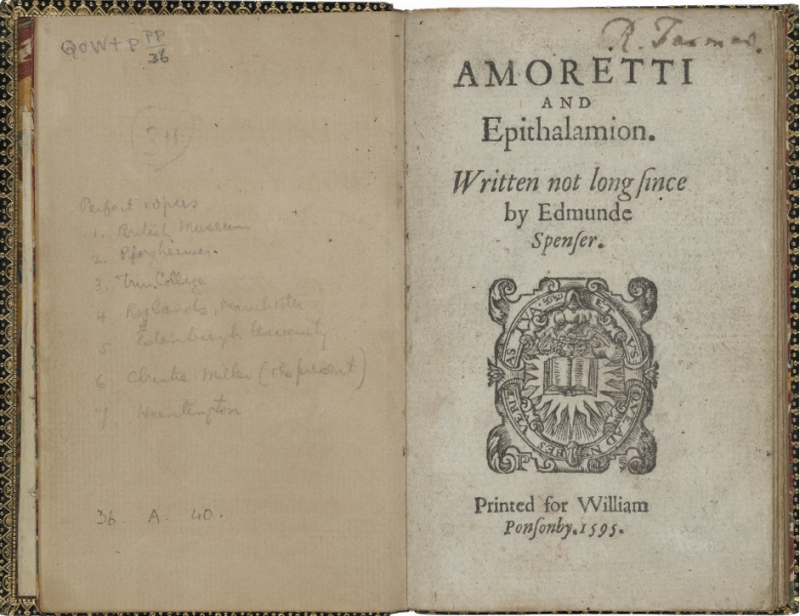 PP
36
34
Perfect copies
1. British Museum
2. Pforzheimer.
3. Trin. College
4. Rylands, Manchester
5 Edinburgh University
6. Christie Miller (the present)
7 Huntington
36 A. 40.
R. Farmer.
AMORETTI
AND
Epithalamion.
Written not long ſince
by Edmunde
Spenſer.
Printed for William
Ponſonby. 1595.